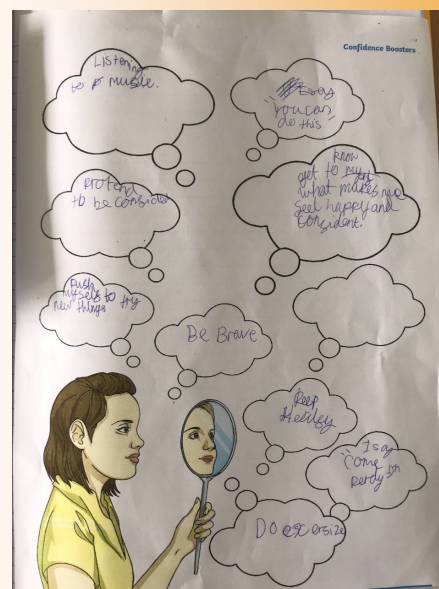 Confidence Boosters
Listening
to music.
I say
"you can
do this"
Pretend
to be consident
get to know
what makes me
seel happy and
consident.
push
myself to try
new things
Be Brave
Keep
Healey
I say
"Come on
Do exersize